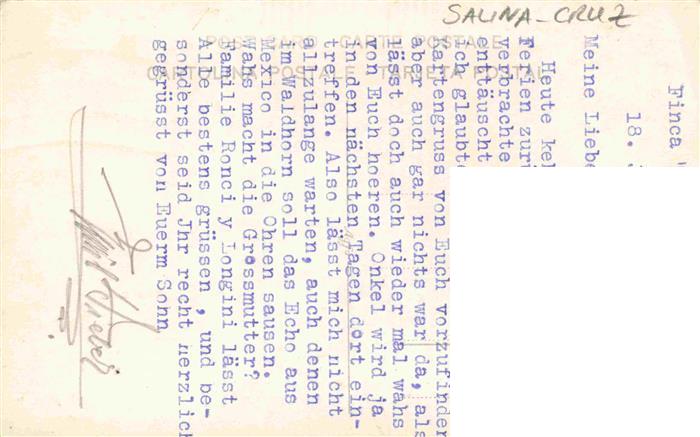 SALINA-CRUZ
POSTALE
CARTOLINA POSTALE TARJETA POSTAL
Finca
18.
Meine Liebe
Heute keh
Ferien zurü
verbrachte
enttäuscht
ich glaubte
Kartengruss von Euch vorzufinden
aber auch gar nichts war da, als
lässt doch auch wieder mal wahs
von Euch hoeren. Onkel wird ja
in den nächsten Tagen dort ein-
treffen. Also lässt mich nicht
allzulange warten, auch denen
im Waldhorn soll das Echo aus
Mexico in die Ohren sausen.
Wahs macht die Grossmutter?
Familie Ronci y Longini lässt
Alle bestens grüssen , und be-
sonderst seid Jhr recht herzlich
gegrüsst von Euerm Sohn